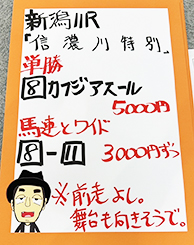 新潟11R
「信濃川特別」
単勝
⑧カフジアスール
5000円
馬連とワイド
⑧-⑪ 3000円ずつ
※前走よし。
舞台も向きそうで。